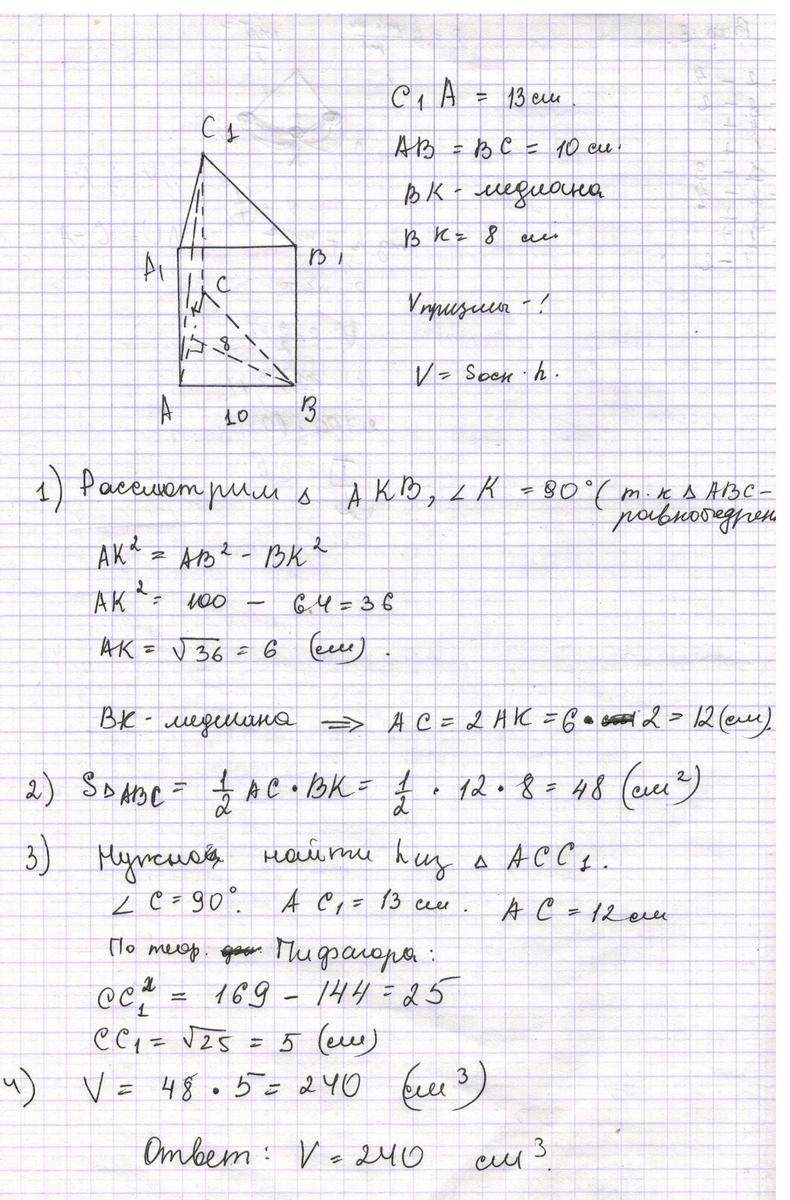 C1 A = 13 см.
AB = BC = 10 см.
BK - медиана
BK = 8 см
Vпризмы - ?
V = Sосн · h.
C1
A1
B1
C
K
8
A
10
B
1) Рассмотрим △ AKB, ∠K = 90° (т.к △ABC -
равнобедрен
AK² = AB² - BK²
AK² = 100 - 64 = 36
AK = √36 = 6 (см).
BK - медиана ⇒ AC = 2AK = 6 · 2 = 12 (см).
2) S△ABC = 1/2 AC · BK = 1/2 · 12 · 8 = 48 (см²)
3) Нужно найти h из △ ACC1.
∠C = 90°. AC1 = 13 см. AC = 12 см
По теор. Пифагора:
CC1² = 169 - 144 = 25
CC1 = √25 = 5 (см)
4) V = 48 · 5 = 240 (см³)
Ответ: V = 240 см³.